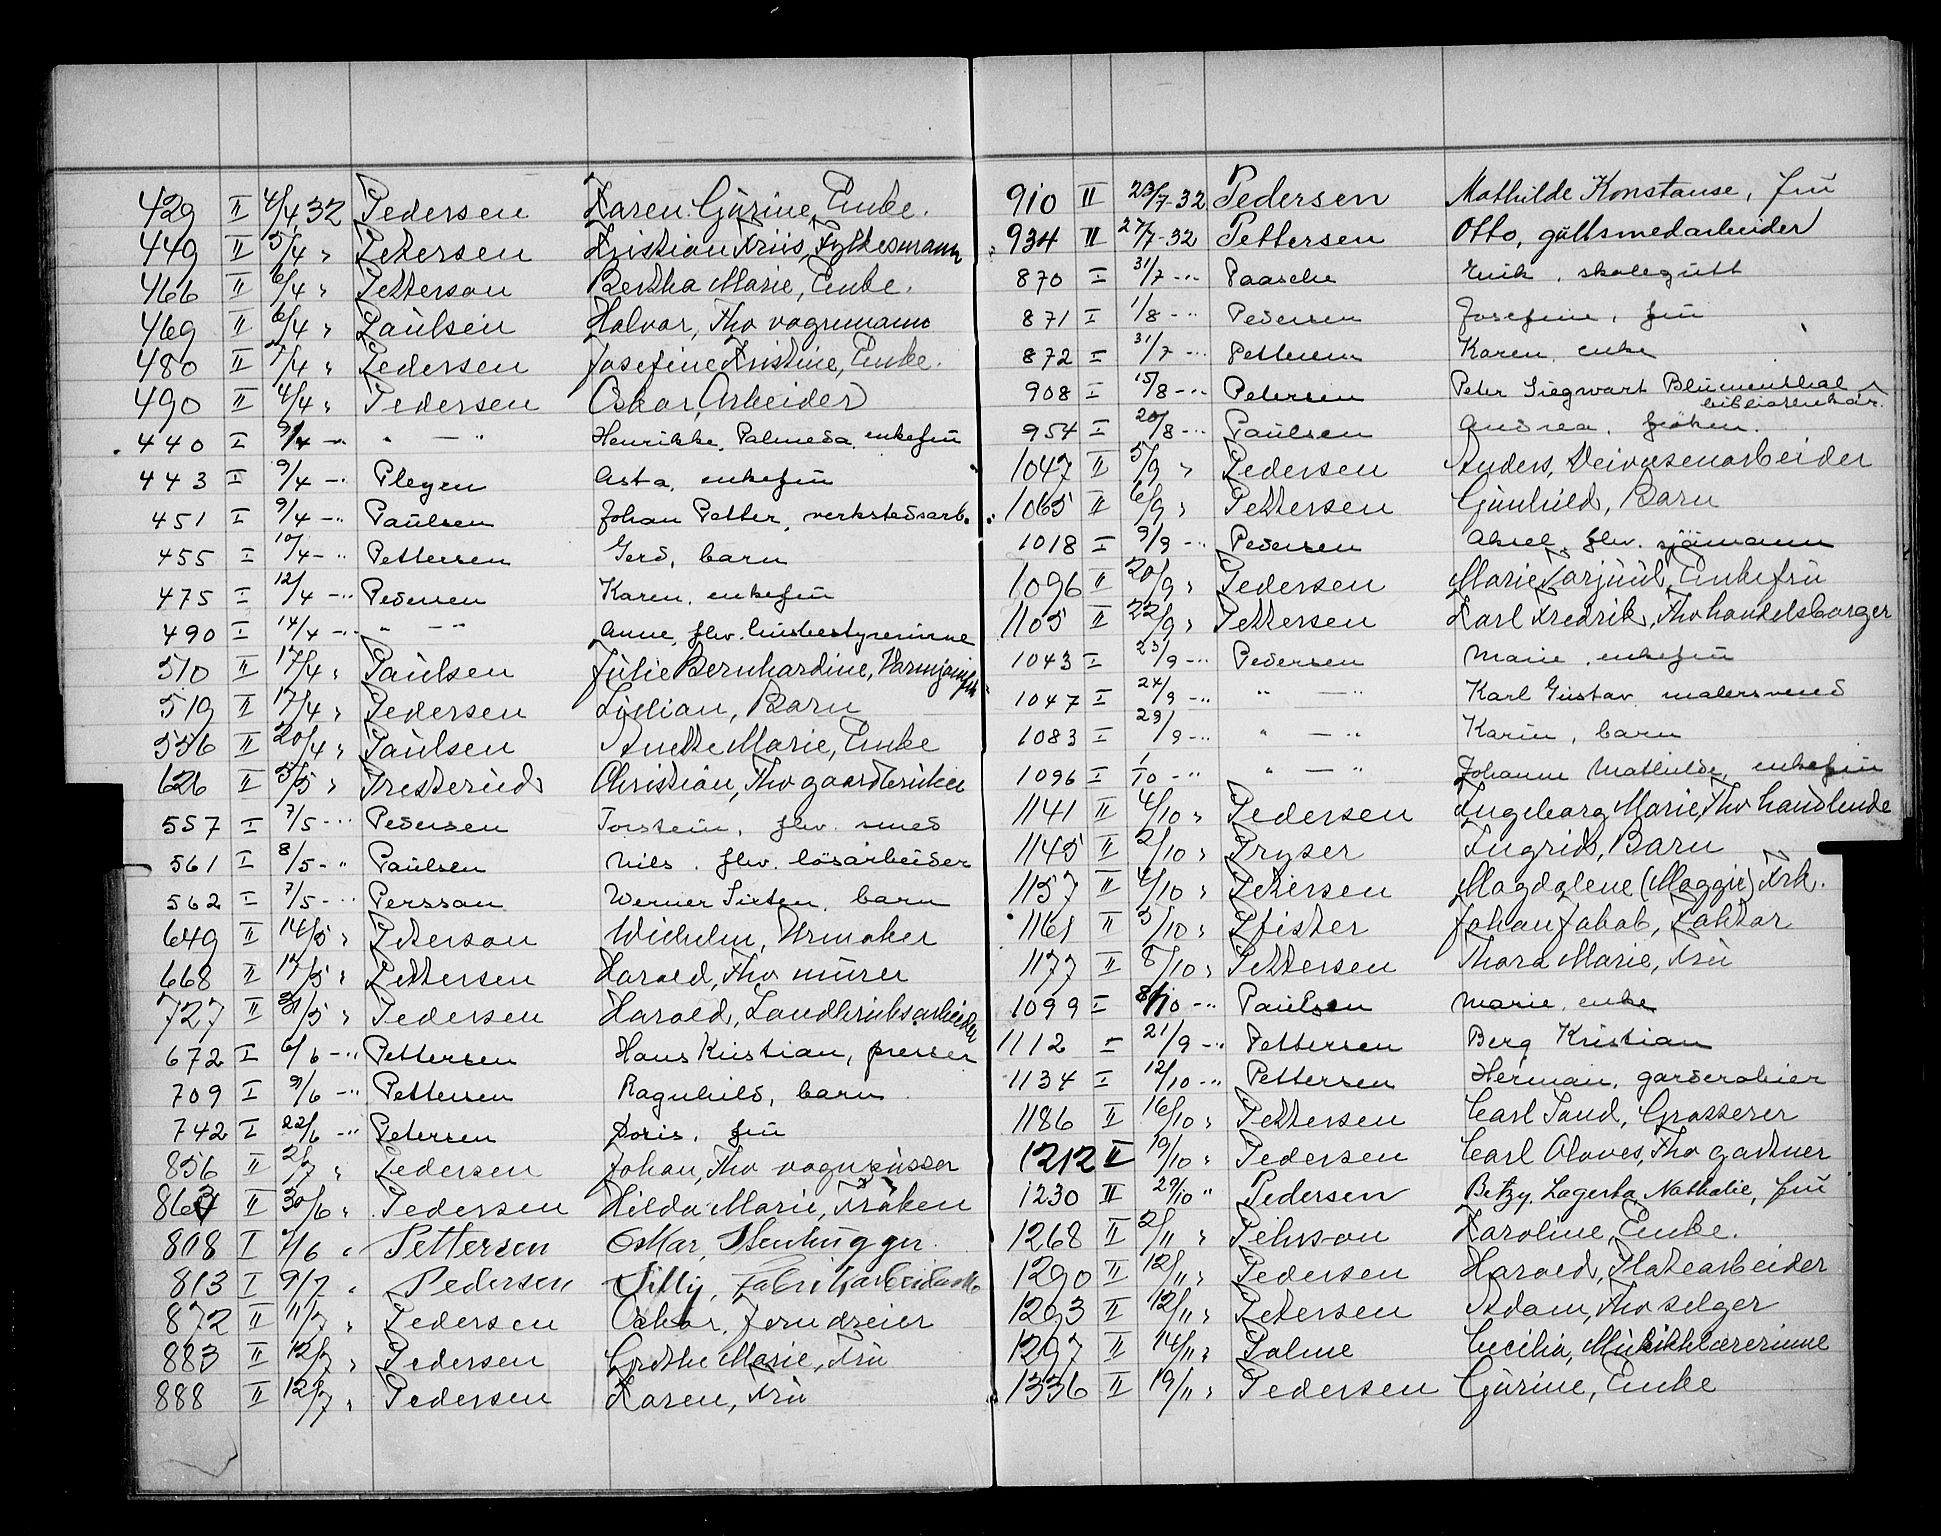 429 II 4/4 32 Pedersen Karen Gurine, Enke.
449 II 5/4 " Petersen Kristian Friis, Fylkesmann
466 II 6/4 " Petterson Bertha Marie, Enke.
469 II 6/4 " Paulsen Halvor, Fhv vognmann
480 II 7/4 " Pedersen Josefine Kristine, Enke.
490 II 4/4 " Pedersen Oskar, Arbeider
440 I 9/4 -" " — " Henrikke Palmeda enkefru
443 I 9/4 -" Pleyen Asta, enkefru
451 I 9/4 -" Paulsen Johan Petter, verkstedsarb.
455 I 10/4 -" Pettersen Gerd, barn
475 I 12/4 -" Pedersen Karen, enkefru
490 I 14/4 -" " — " Anne, fhv. husbestyrerinne
510 II 17/4 " Paulsen Julie Bernhardine,
519 II 17/4 " Pedersen Lillian, Barn
556 II 20/4 " Paulsen Anette Marie, Enke
626 II 5/5 " Presterud Christian, Fhv gaardbruker
557 I 7/5 -" Pedersen Torstein, fhv. smed
561 I 8/5 -" Paulsen Nils. fhv. løsarbeider
562 I 7/5 -" Persson Werner Sixten, barn
649 II 14/5 " Peterson Wilhelm, Urmaker
668 II 17/5 " Pettersen Harald, Fhv murer
727 II 31/5 " Pedersen Harald, Landbruksarbeider
672 I 6/6 -" Pettersen Hans Kristian, presser
709 I 9/6 -" Pettersen Ragnhild, barn
742 I 22/6 -" Petersen Doris, fru
856 II 2/7 " Pedersen Johan, Fhv vognpusser
II 30/6 " Pedersen Hilda Marie, Frøken
808 I 7/6 " Pettersen Oskar, Stenhugger.
813 I 9/7 " Pedersen Silly,
872 II 11/7 " Pedersen Oskar, Jerndreier
883 II 12/7 " Pedersen Grethe Marie, Fru
888 II 12/7 " Pedersen Karen, Fru
910 II 23/7-32 Pedersen Mathilde Konstanse, fru
934 II 27/7-32 Pettersen Otto, gullsmedarbeider
870 I 31/7 -" Paasche Erik, skolegutt
871 I 1/8 -" Pedersen Josefine, fru
872 I 31/7 -" Pettersen Karen, enke
908 I 15/8 -" Petersen Peter Siegwart Blumenthal
bibliotekar.
954 I 20/8 -" Paulsen Andrea, frøken.
1047 II 5/9 " Pedersen Anders, Veivesenarbeider
1065 II 6/9 " Pettersen Gunhild, Barn
1018 I 9/9 -" Pedersen Aksel, fhv. sjømann
1096 II 20/9 " Pedersen Marie Tarjuul, Enkefru
1105 II 22/9 " Pettersen Karl Fredrik, Fhv handelsborger
1043 I 23/9 -" Pedersen Marie, enkefru
1047 I 24/9 -" " — " Karl Gustav malersvend
1083 I 29/9 -" " — " Karin, barn
1096 I 1/10 -" " — " Johanne Mathilde, enkefru
1141 II 4/10 " Pedersen Ingeborg Marie, Fhv handlende
1145 II 2/10 " Pryser Ingrid, Barn
1157 II 4/10 " Petersen Magdalene (Maggie) Frk.
1161 II 5/10 " Pfister Johan Jakob, Faktor
1177 II 8/10 " Pettersen Thora Marie, Fru
1099 I /10 -" Paulsen Marie, enke
1112 I 21/9 -" Pettersen Berg Kristian
1134 I 12/10 -" Pettersen Herman, garderobier
1186 II 16/10 " Pettersen Carl Sand, Grosserer
1212 II 19/10 " Pedersen Carl Olaves, Fhv gartner
1230 II 29/10 " Pedersen Betzy Lagerta Nathalie, fru
1268 II 2/11 " Pehrson Karoline, Enke.
1290 II 12/11 " Pedersen Harald, Platearbeider
1293 II 12/11 " Petersen Adam, Fhv selger
1297 II 14/11 " Palme Cecilia, Musikklærerinne
1336 II 19/11 " Pedersen Gurine, Enke